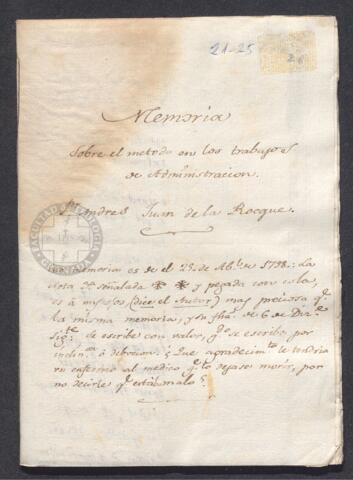 21-25
26
Memoria
sobre el metodo en los trabajos
de Administracion.
Andres Juan de la Rocque.
Esta memoria es de el 25. de Ab.l de 1798: La
nota señalada * * y pegada con cola,
es à mis ojos (dice el Autor) mas preciosa q.e
la misma memoria, y su fha. de 6 de Dir.e
Sig.te se escribe con valor, q.do se escribe por
inclin.on ò debocion: ¿ Que agradecim.to le tendria
un enfermo al medico q.e lo dejase morir, por
no decirle q.e està malo ?